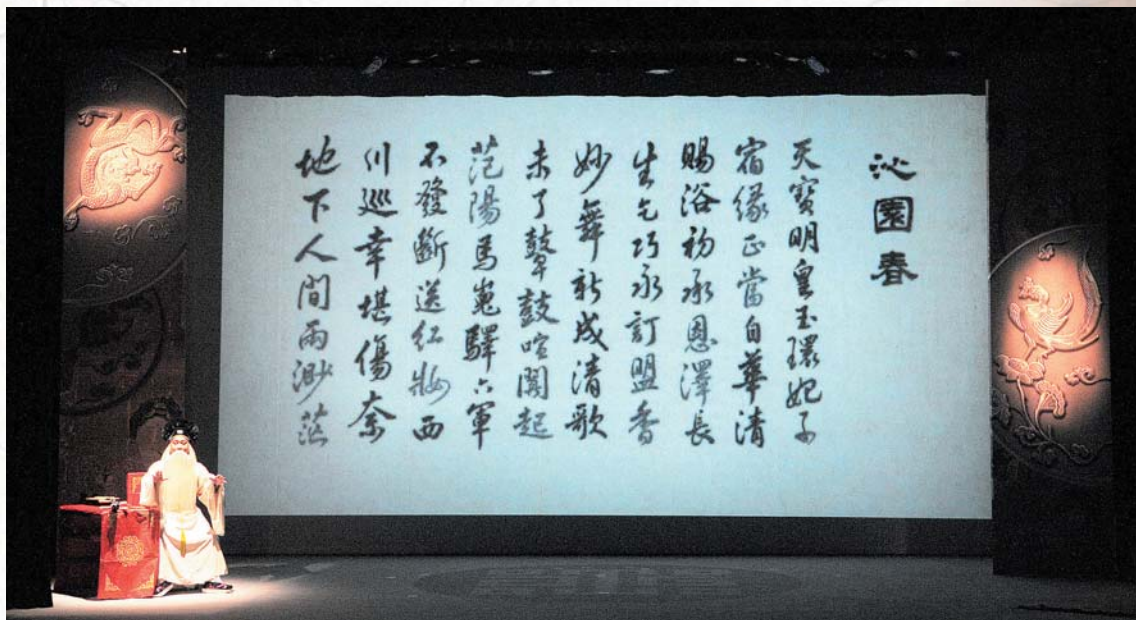 沁園春
天寶明皇玉環妃子
宿緣正當自華清
賜浴初承恩澤長
生乞巧永訂盟香
妙舞新成清歌
未了鼙鼓喧闐起
范陽馬嵬驛六軍
不發斷送紅妝西
川巡幸堪傷奈
地下人間兩渺茫